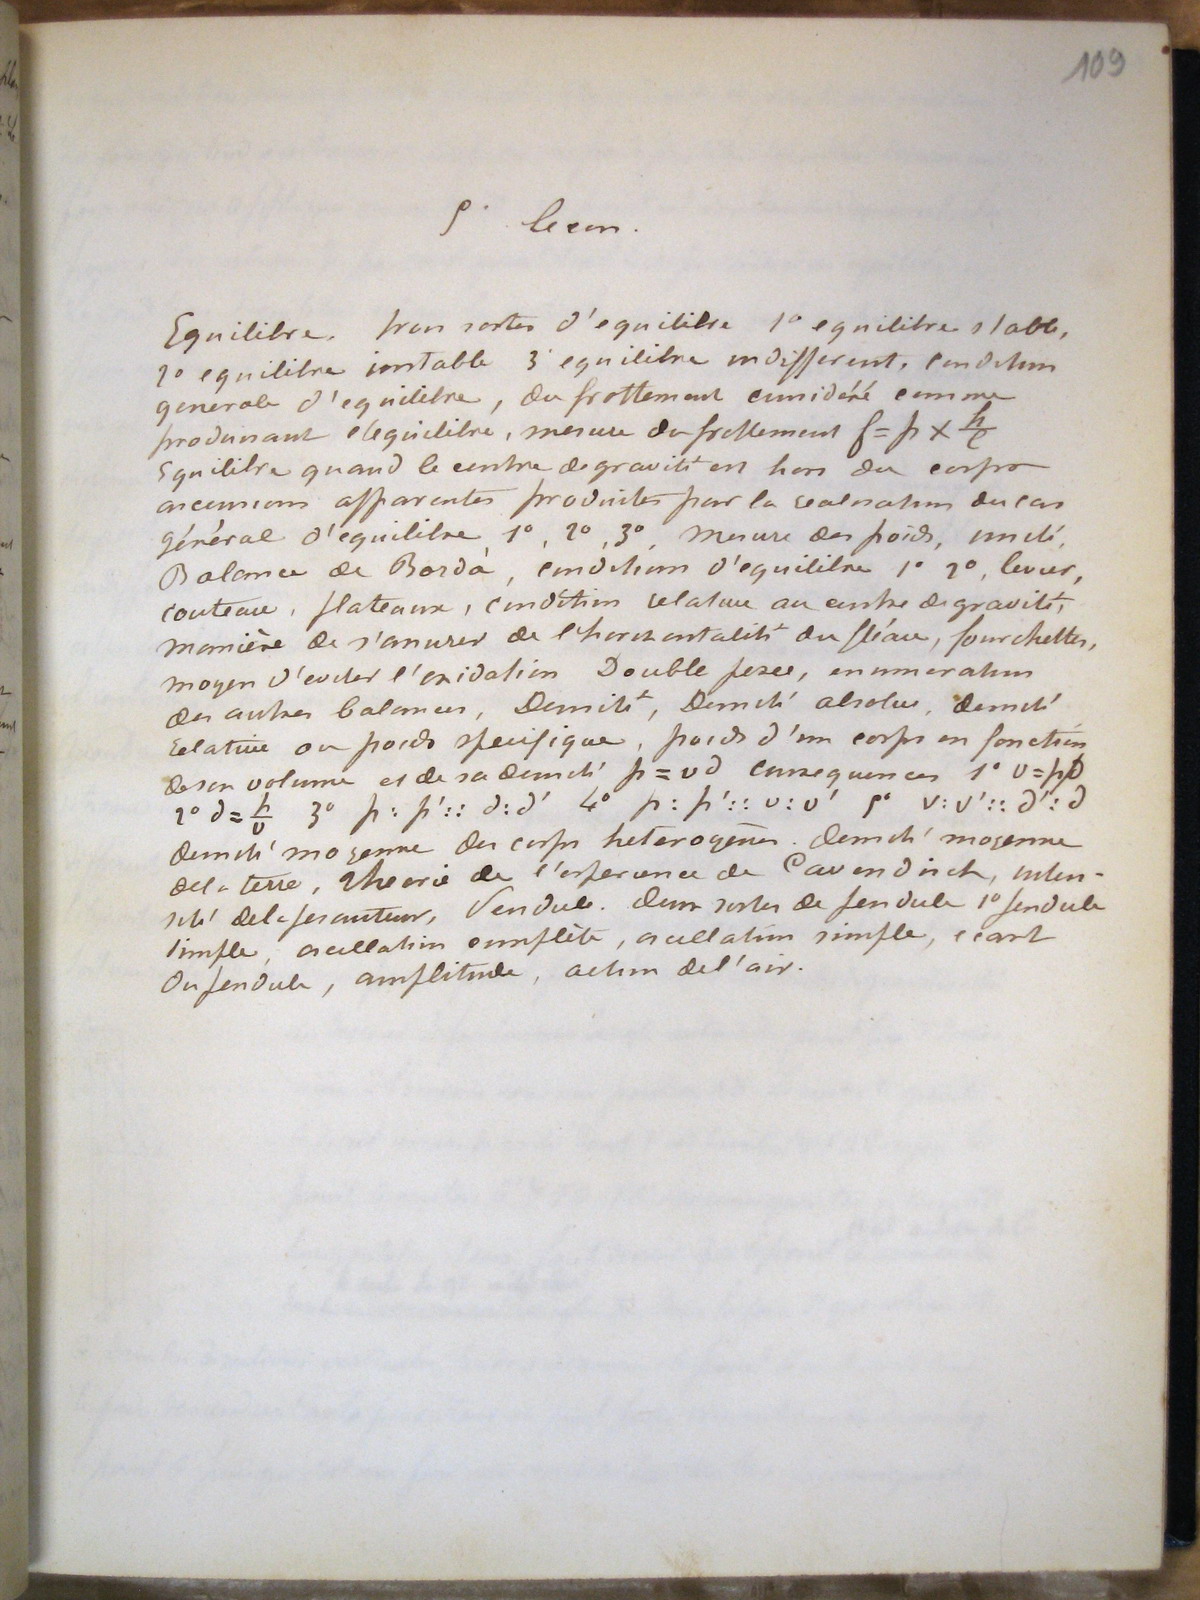 109
5° lecon.
Equilibre. trois sortes d'equilibre 1° equilibre stable,
2° equilibre instable 3° equilibre indifferent, condition
generale d'equilibre, du frottement considéré comme
produisant l'equilibre, mesure du frottement f = p × h/l
Equilibre quand le centre de gravité est hors du corps
ascensions apparentes produites par la realisation du cas
général d'equilibre 1°, 2°, 3°, mesure des poids, unité,
Balance de Borda, conditions d'equilibre 1° 2°, levier,
couteau, plateaux, condition relative au centre de gravité,
manière de s'assurer de l'horizontalité du fléau, fourchettes,
moyen d'eviter l'oxidation Double pesee, enumeration
des autres balances, Densité, Densité absolue, densité
relative ou poids specifique, poids d'un corps en fonction
de son volume et de sa densité p = vd consequences 1° v = p/d
2° d = p/v 3° p : p' :: d : d' 4° p : p' :: v : v' 5° v : v' :: d' : d
densité moyenne des corps heterogènes. densité moyenne
de la terre, theorie de l'experience de Cavendisch, inten-
sité de la pesanteur, Pendule. deux sortes de pendule 1° pendule
simple, oscillation complète, oscillation simple, ecart
du pendule, amplitude, action de l'air.